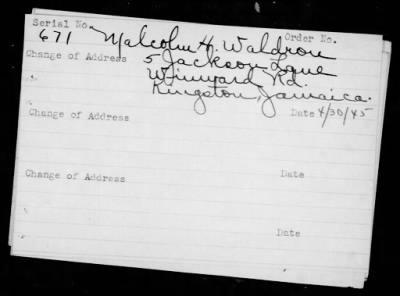 Serial No. Order No.
671 Malcolm H. Waldron
Change of Address 5 Jackson Lane
Winward Rd.
Kingston, Jamaica.
Change of Address Date 4/30/45
Change of Address Date
Date